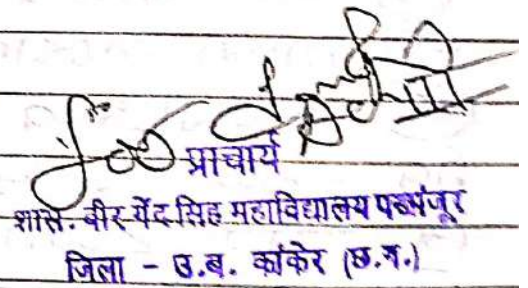 प्राचार्य
शास. वीर गेंद सिंह महाविद्यालय पखांजूर
जिला - उ.ब. कांकेर (छ.ग.)